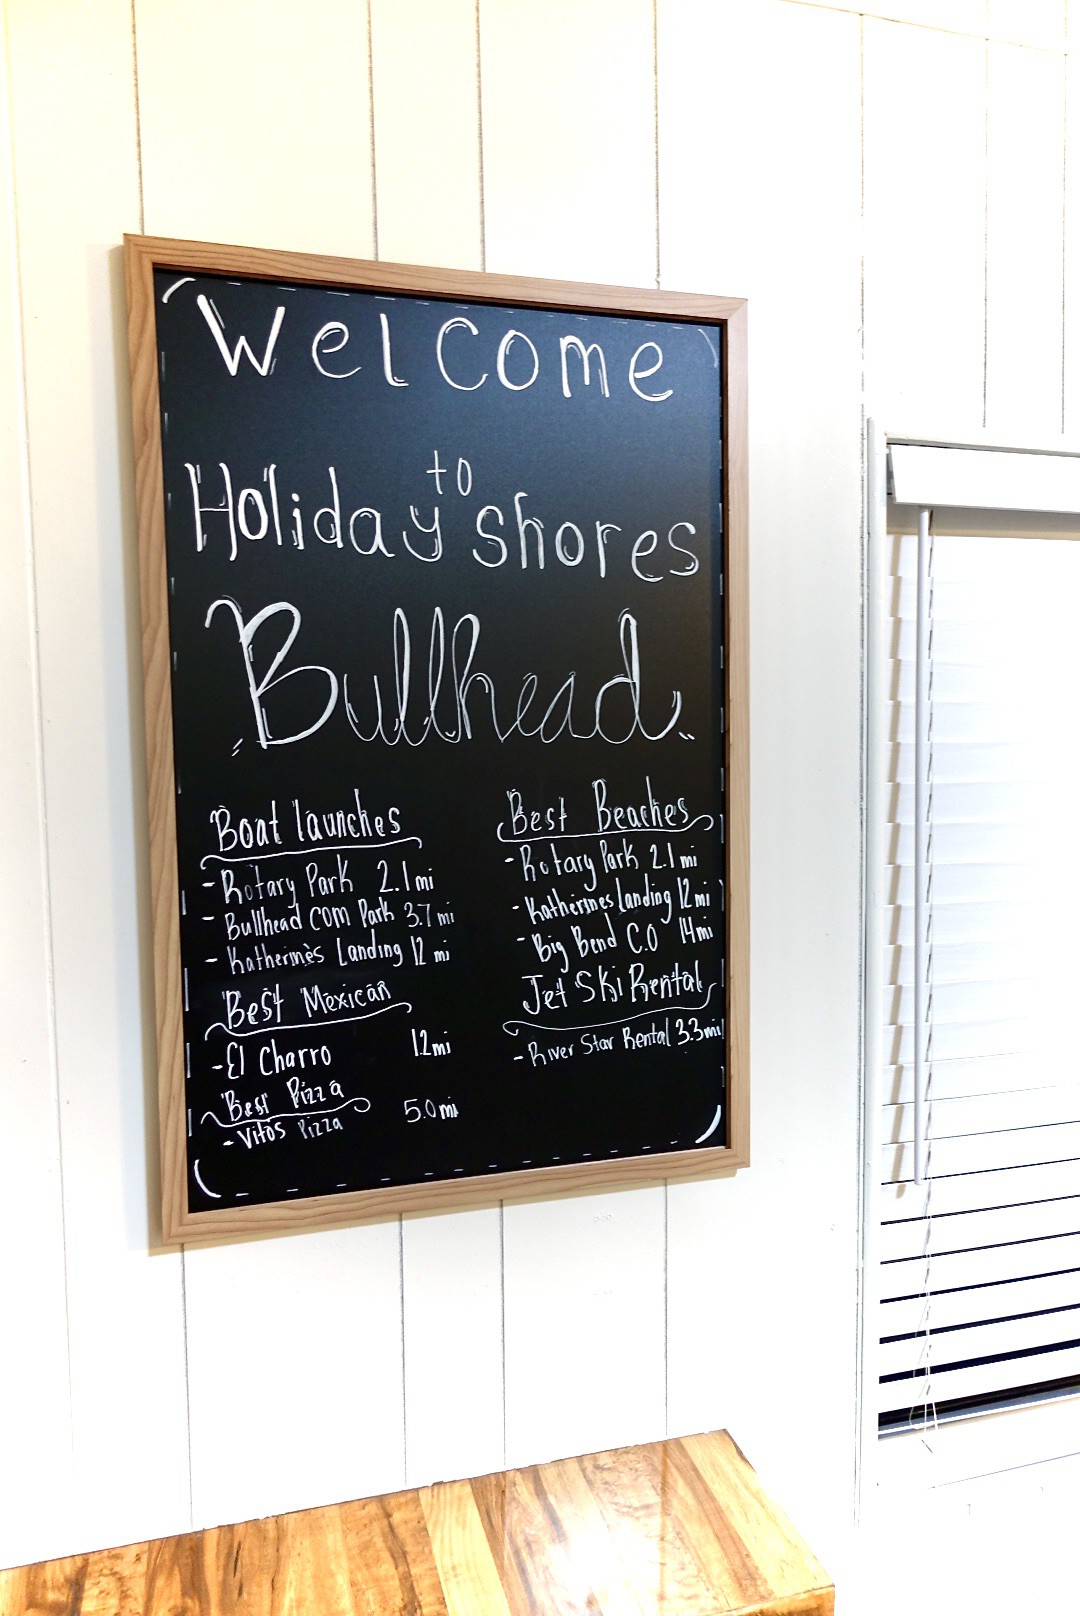 Welcome
to
Holiday Shores
Bullhead
Boat launches
- Rotary Park 2.1 mi
- Bullhead com Park 3.7 mi
- Kathermes Landing 12 mi
Best Mexican
- El Charro 1.2 mi
Best Pizza
- Vitos Pizza 5.0 mi
Best Beaches
- Rotary Park 2.1 mi
- Kathermes Landing 12 mi
- Big Bend C.O 14 mi
Jet Ski Rental
- River Star Rental 3.3 mi